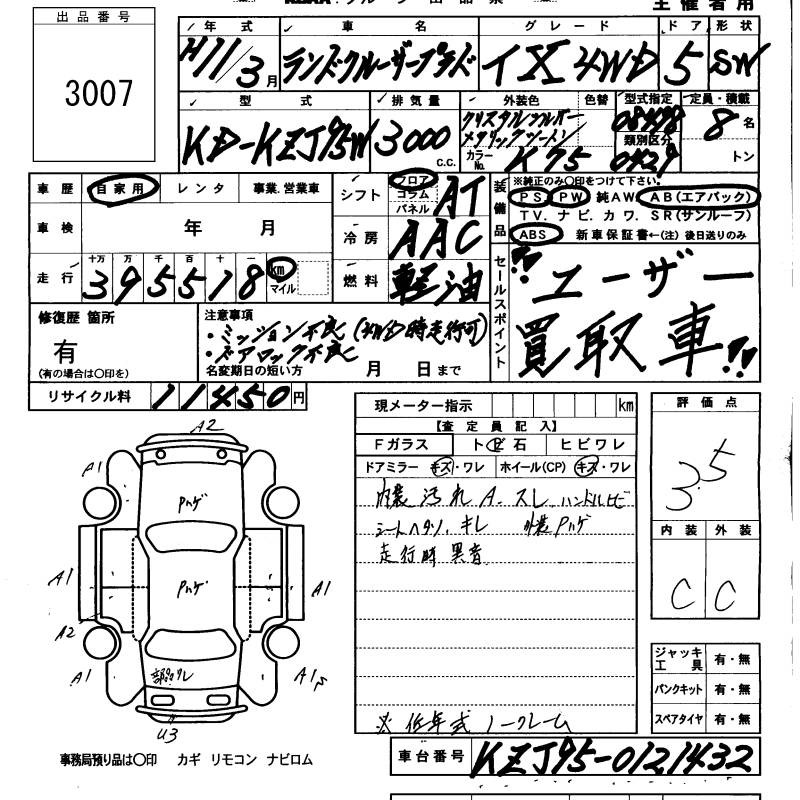 主催者用
出品番号
3007
年式 車名 グレード ドア 形状
H11/3月 ランドクルーザープラド イX 4WD 5 SW
型式 排気量 外装色 色替 型式指定 定員・積載
KD-KZJ95W 3000 C.C. クリスタルシルバー メタリックツートン 08498 8名
類別区分
カラーNo. K75 0429 トン
車歴 自家用 レンタ 事業.営業車
シフト フロア コラム パネル AT
装備品 ※純正のみ〇印をつけて下さい.
PS. PW. 純AW. AB(エアバック)
TV. ナビ. カワ. SR(サンルーフ)
ABS 新車保証書←(注) 後日送りのみ
車検 年 月
冷房 AAC
走行 十万 万 千 百 十 一
395518 km マイル
燃料 軽油
セールスポイント
!! ユーザー
買取車!!
修復歴 箇所
有
(有の場合は〇印を)
注意事項
・ミッション不良(4WD時走行可)
・ドアロック不良
名変期日の短い方 月 日まで
リサイクル料 11450円
現メーター指示 km
【査定員記入】
Fガラス トビ石 ヒビワレ
ドアミラー キズ・ワレ ホイール(CP) キズ・ワレ
内装汚れ A. スレ ハンドルヒビ
シートヘタリ. キレ 外装Pハゲ
走行時異音
※低年式 ノークレーム
評価点
3.5
内装 外装
C C
ジャッキ工具 有・無
パンクキット 有・無
スペアタイヤ 有・無
A2
A1
Pハゲ
A1
Pハゲ
A1
A2
A1
A1s
U3
事務局預り品は〇印 カギ リモコン ナビロム
車台番号 KZJ95-0121432